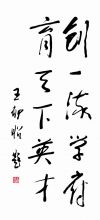 创一流学府
育天下英才
王郁昭题